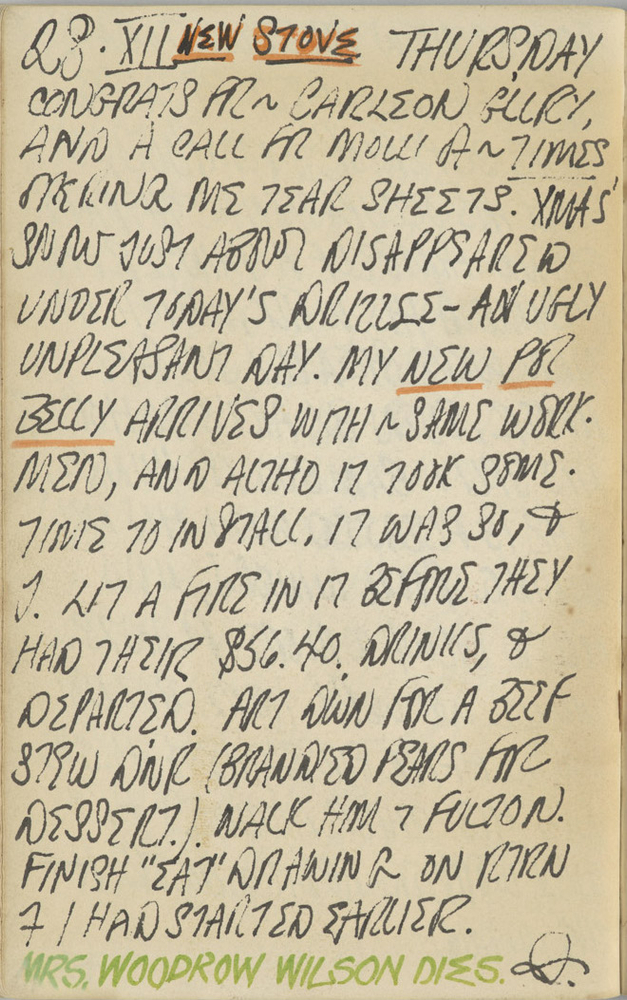 28·XII NEW STOVE THURSDAY
CONGRATS FR ~ CARLSON GLLRY,
AND A CALL FR MOLLI A ~ TIMES
OFFRING ME TEAR SHEETS. XMAS'
SNOW JUST ABOUT DISAPPEARED
UNDER TODAY'S DRIZZLE – AN UGLY
UNPLEASANT DAY. MY NEW POT
BELLY ARRIVES WITH ~ SAME WORK-
MEN, AND ALTHO IT TOOK SOME-
TIME TO INSTALL, IT WAS SO, &
J. LIT A FIRE IN IT BEFORE THEY
HAD THEIR $56.40, DRINKS, &
DEPARTED. ART DOWN FOR A BEEF
STEW DNR (BRANDIED PEARS FOR
DESSERT.). WALK HIM 7 FULTON.
FINISH "EAT" DRAWING ON RTRN
7 I HAD STARTED EARLIER.
MRS. WOODROW WILSON DIES.